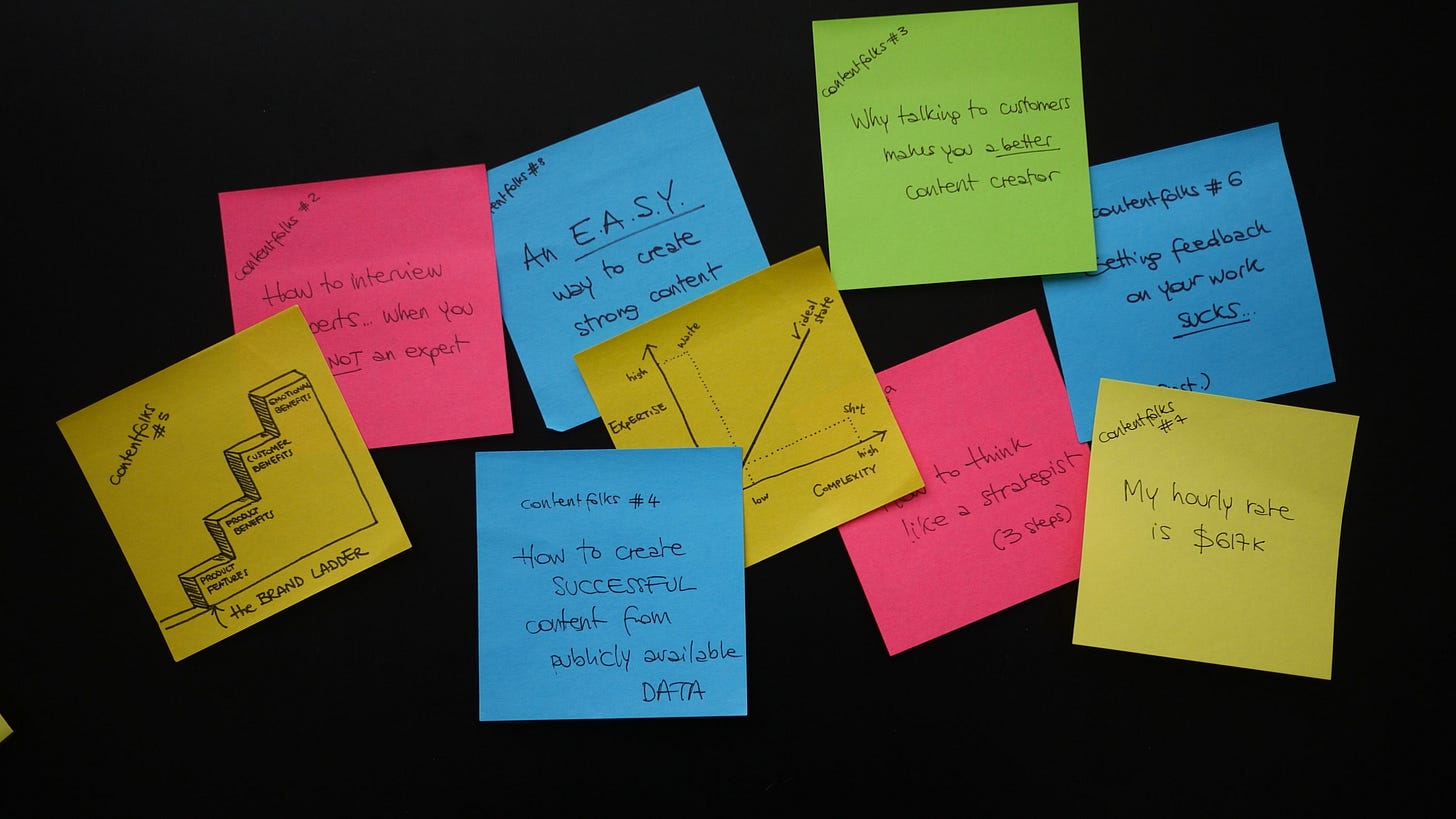 contentfolks #2
How to interview
perts... when you
NOT an expert
contentfolks #5
EMOTIONAL
BENEFITS
CUSTOMER
BENEFITS
PRODUCT
BENEFITS
PRODUCT
FEATURES
the BRAND LADDER
tentfolks #8
An E.A.S.Y.
way to create
strong content
high
waste
ideal
state
EXPERTISE
shot
low
high
COMPLEXITY
contentfolks #4
How to create
SUCCESSFUL
content from
publicly available
DATA
contentfolks #3
Why talking to customers
makes you a better
content creator
to think
like a strategist
(3 steps)
contentfolks #6
Getting feedback
on your work
sucks...
contentfolks
#7
My hourly rate
is $617k